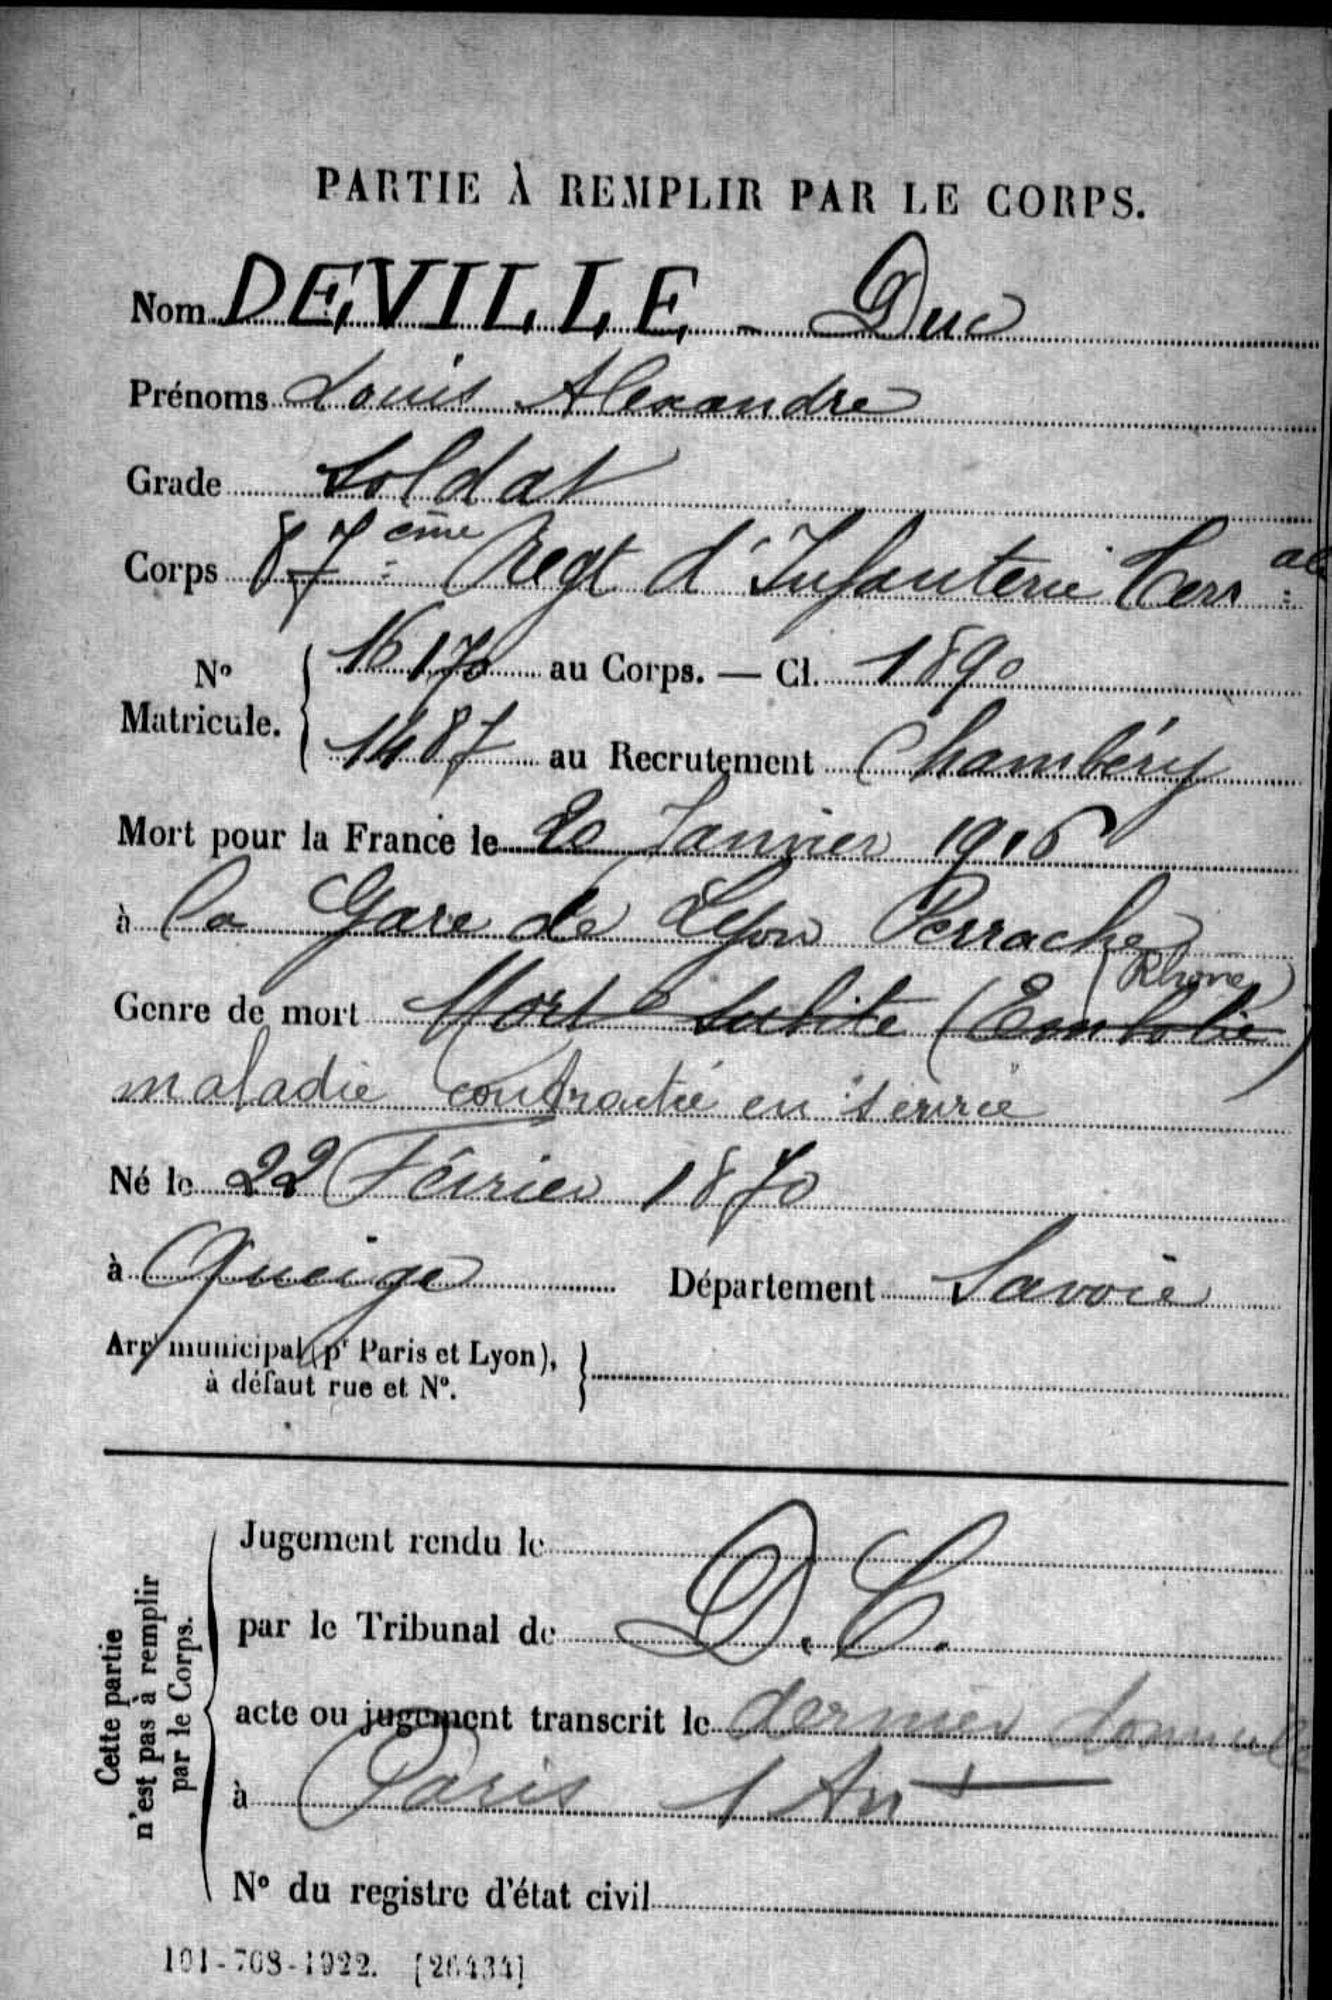 PARTIE À REMPLIR PAR LE CORPS.
Nom DEVILLE - Duc
Prénoms Louis Alexandre
Grade Soldat
Corps 87ème Regt d'Infanterie Terr ale
No 16170 au Corps. — Cl. 1890
Matricule. 1487 au Recrutement Chambéry
Mort pour la France le 20 Janvier 1916
à la Gare de Lyon Perrache
(Rhone)
Genre de mort Mort subite (Embolie)
maladie contractée en service
Né le 22 Février 1870
à Queige Département Savoie
Arrt municipal (pr Paris et Lyon),
à défaut rue et No.
Cette partie
n'est pas à remplir
par le Corps.
Jugement rendu le
par le Tribunal de D.C.
acte ou jugement transcrit le dernier domicile
à Paris 1 Arr
No du registre d'état civil
101-708-1922. [26434]